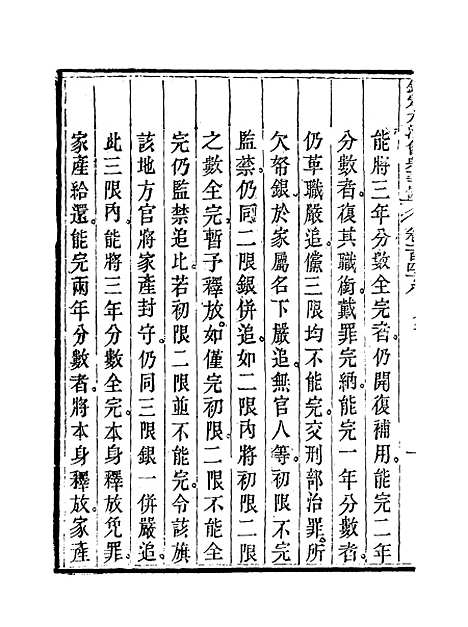 能將三年分數全完者仍開復補用能完二年
分數者復其職銜戴罪完納能完一年分數者
仍革職嚴追儻三限均不能完交刑部治罪所
欠帑銀於家屬名下嚴追無官人等初限不完
監禁仍同二限銀併追如二限內將初限二限
之數全完暫予釋放如僅完初限二限不能全
完仍監禁追比若初限二限並不能完令該旗
該地方官將家產封守仍同三限銀一併嚴追
此三限內能將三年分數全完本身釋放免罪
家產給還能完兩年分數者將本身釋放家產